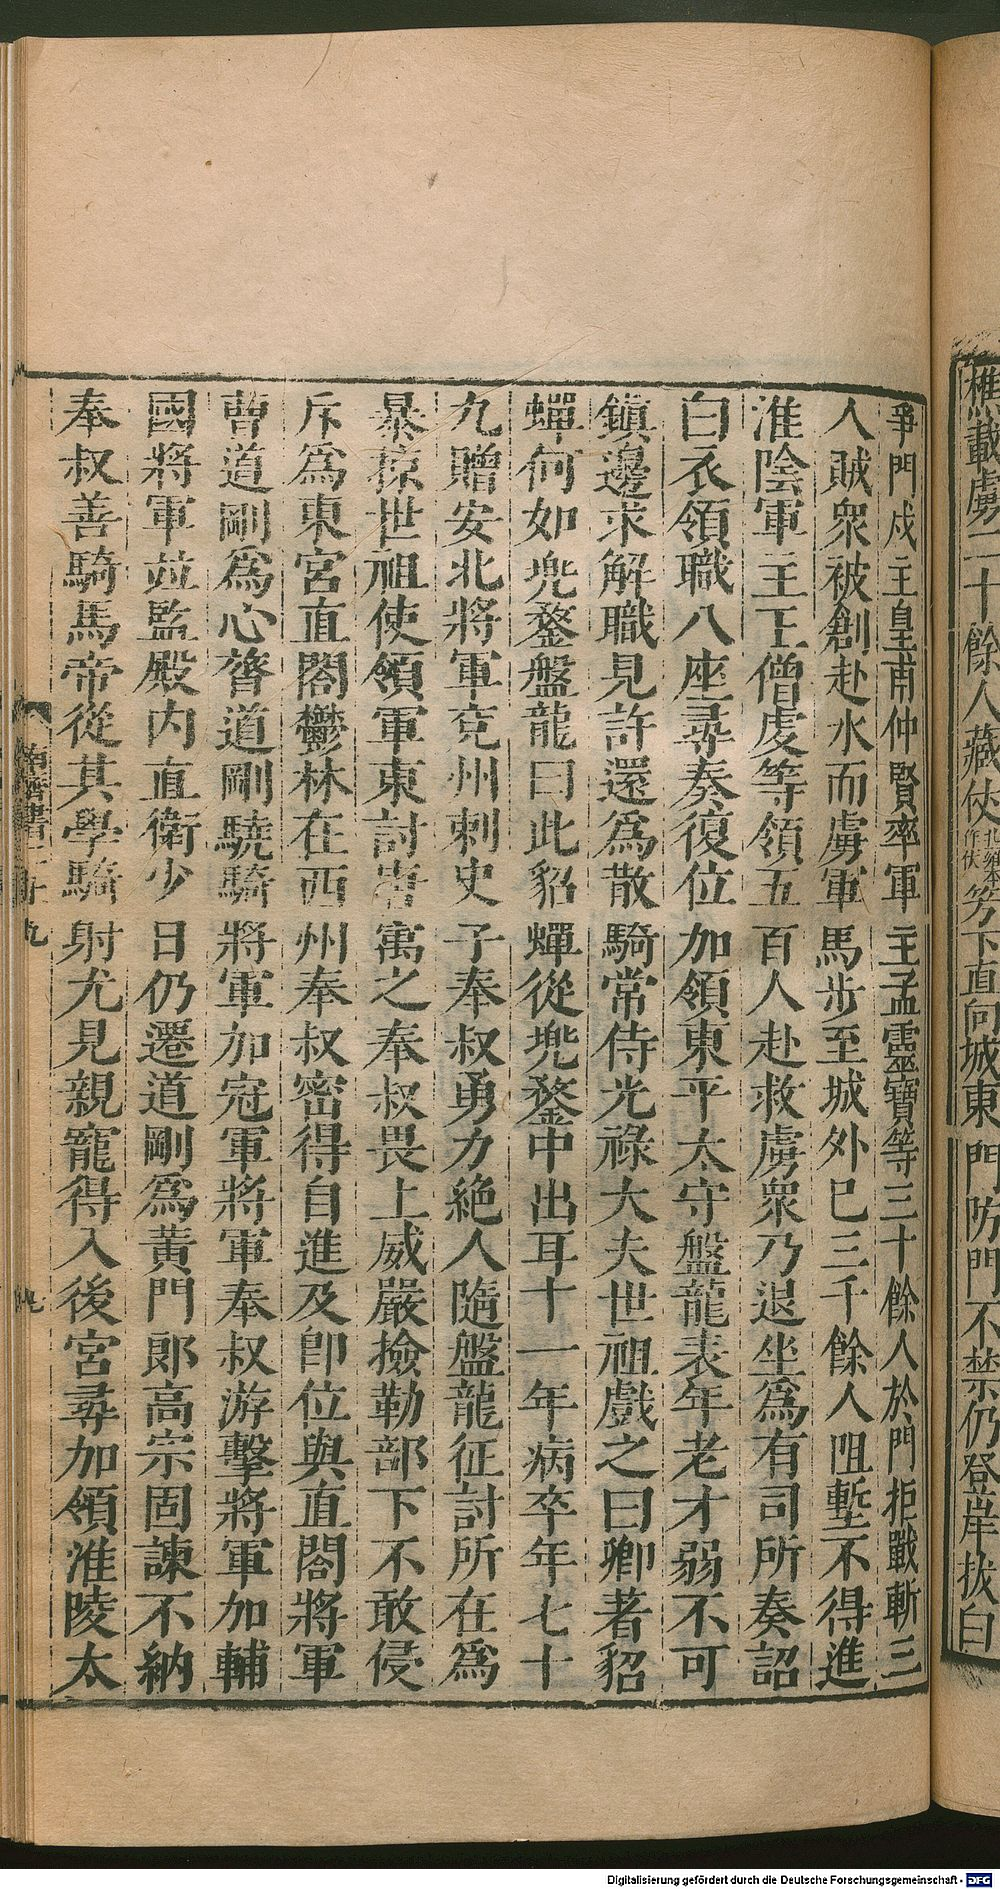 樵載虜二十餘人藏伏 北雍本作伏 篣下直向城東門防門不禁仍登岸拔白
爭門戍主皇甫仲賢率軍主孟靈寶等三十餘人於門拒戰斬三
人賊衆被創赴水而虜軍馬步至城外巳三千餘人阻塹不得進
淮陰軍主王僧虔等領五百人赴救虜衆乃退坐爲有司所奏詔
白衣領職八座尋奏復位加領東平太守盤龍表年老才弱不可
鎭邊求解職見許還爲散騎常侍光祿大夫世祖戲之曰卿著貂
蟬何如兜鍪盤龍曰此貂蟬從兜鍪中出耳十一年病卒年七十
九贈安北將軍兗州刺史子奉叔勇力絶人隨盤龍征討所在爲
暴掠世祖使領軍東討唐寓之奉叔畏上威嚴撿勒部下不敢侵
斥爲東宮直閤鬱林在西州奉叔密得自進及卽位與直閤將軍
曹道剛爲心膂道剛驍騎將軍加冠軍將軍奉叔游擊將軍加輔
國將軍並監殿内直衛少日仍遷道剛爲黄門郎高宗固諫不納
奉叔善騎馬帝從其學騎射尤見親寵得入後宮尋加領淮陵太
南齊書二十九
九
Digitalisierung gefördert durch die Deutsche Forschungsgemeinschaft - DFG